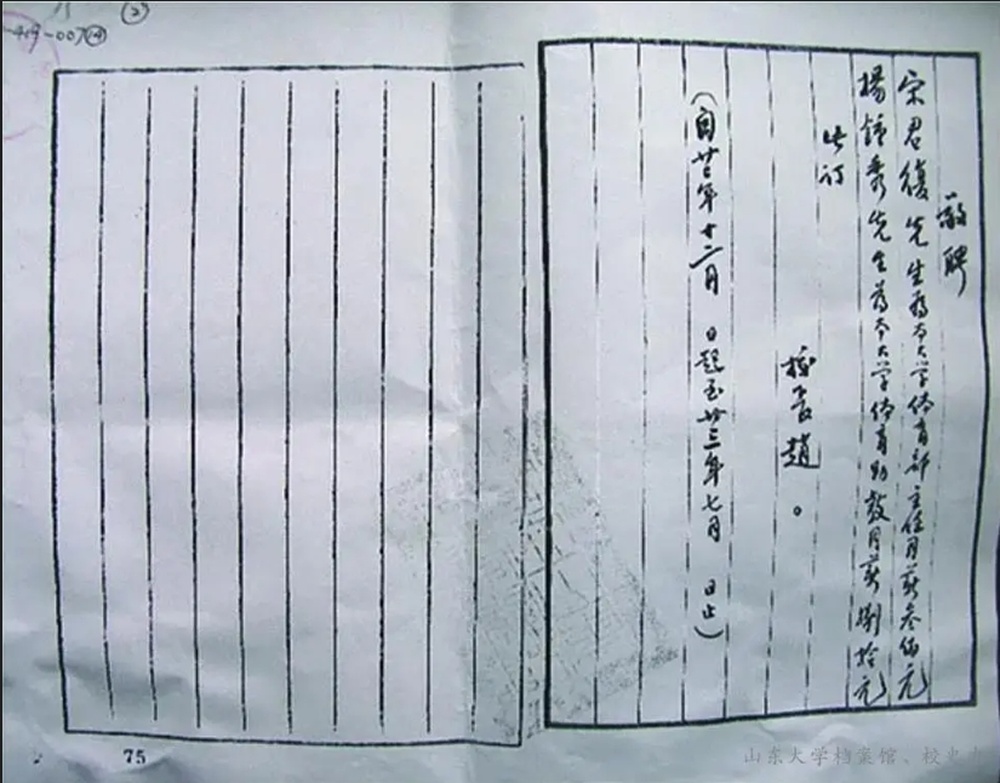 敬聘
宋君復先生為本大学体育部主任月薪叁佰元
楊鍾秀先生為本大学体育助教月薪捌拾元
此訂
校長趙。
(自廿二年十二月 日起至廿三年七月 日止)
75
山东大学档案馆、校史